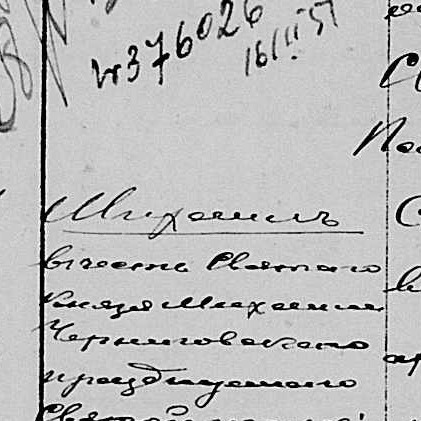 №376026
16/II 57
Михаилъ
въ честь Святаго
Князя Михаила
Черниговскаго
празднуемаго
Святой